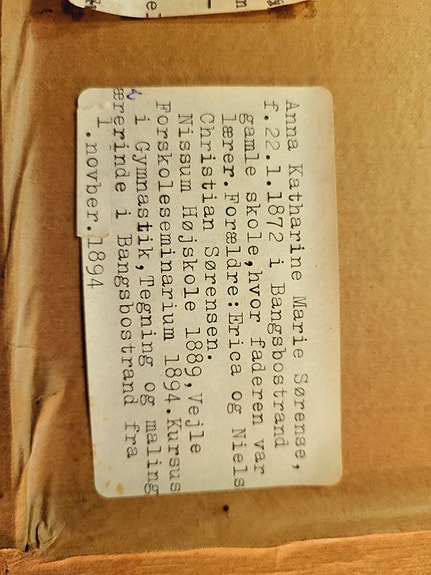 Anna Katharine Marie Sørense,
f.22.1.1872 i Bangsbostrand
gamle skole,hvor faderen var
lærer.Forældre:Erica og Niels
Christian Sørensen.
Nissum Højskole 1889,Vejle
Forskoleseminarium 1894.Kursus
i Gymnastik,Tegning og maling
ærerinde i Bangsbostrand fra
1.novber.1894